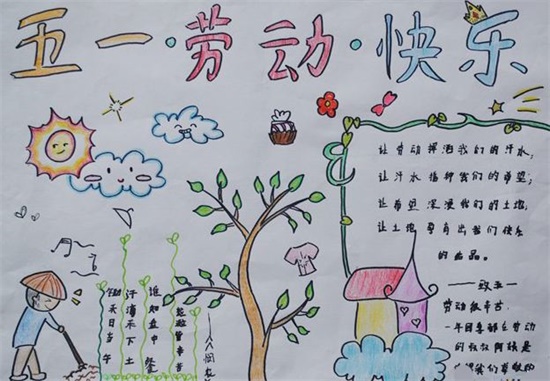 五一·劳动·快乐
让劳动挥洒我们的汗水,
让汗水播种我们的希望;
让希望深浸我们的土地,
让土地孕育出我们快乐
的 品。
——致五一
劳动最辛苦
一年四季都在劳动
的叔叔阿姨是
我们尊敬的
锄禾日当午
汗滴禾下土
谁知盘中餐
粒粒皆辛苦
——悯农